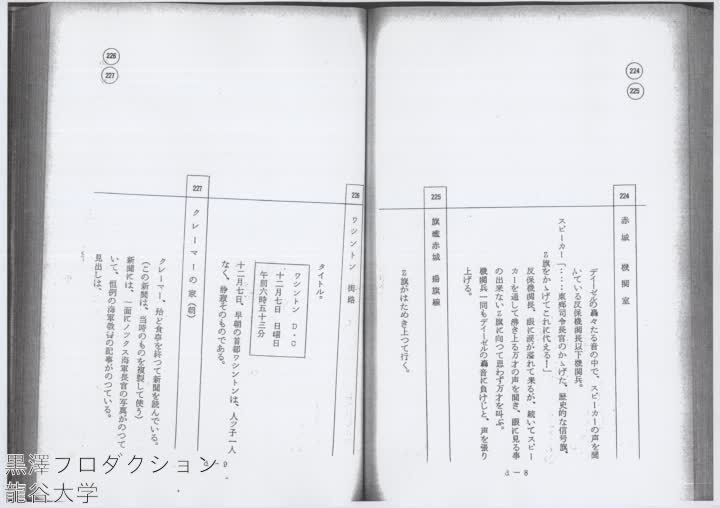 224
225
224
赤城 機関室
デイーゼルの轟々たる音の中で、スピーカーの声を聞
んでいる反保機関長以下機関兵。
スピーカー「……東郷司令長官のかゝげた、歴史的な信号旗、
Z旗をかゝげてこれに代える!」
反保機関長、眼に涙が溢れて来るが、続いてスピー
カーを通して沸き上る万才の声を聞き、眼に見る事
の出来ないZ旗に向つて思わず万才を叫ぶ。
機関兵一同もデイーゼルの轟音に負けじと、声を張り
上げる。
225
旗艦赤城 揚旗線
Z旗がはためき上つて行く。
d－8
226
227
226
ワシントン 街路
タイトル。
ワシントン D・C
十二月七日 日曜日
午前六時五十三分
十二月七日、早朝の首都ワシントンは、人ツ子一人
なく、静寂そのものである。
227
クレーマーの家(朝)
クレーマー、殆ど食事を終つて新聞を読んでいる。
(この新聞は、当時のものを複製して使う)
新聞には、一面にノツクス海軍長官の写真がのつて
いて、恒例の海軍教書の記事がのつている。
見出しは、
d－9
黒澤プロダクション
龍谷大学